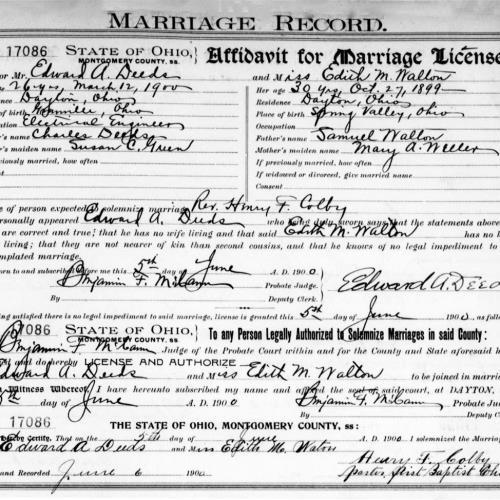 MARRIAGE RECORD.
17086 STATE OF OHIO, MONTGOMERY COUNTY, ss. Affidavit for Marriage License
or Mr. Edward A. Deeds and Miss Edith M. Walton
26 yrs, March 12, 1900 Her age 30 yrs, Oct. 27, 1899
ence Dayton, Ohio Residence Dayton, Ohio
of birth Granville, Ohio Place of birth Spring Valley, Ohio
ation Electrical Engineer Occupation
er's name Charles Deeds Father's name Samuel Walton
er's maiden name Susan C. Green Mother's maiden name Mary A. Weller
viously married, how often If previously married, how often
If widowed or divorced, give married name
Consent
e of person expected to solemnize marriage Rev. Henry F. Colby
ersonally appeared Edward A. Deeds who being duly sworn says that the statements above
are correct and true; that he has no wife living and that said Edith M. Walton has no
living; that they are nearer of kin than second cousins, and that he knows of no legal impediment to
emplated marriage.
orn to and subscribed before me this 5th day of June A. D. 1900 Edward A. Deed
Benjamin F. McCann Probate Judge.
By Deputy Clerk.
ing satisfied there is no legal impediment to said marriage, license is granted this 5th day of June 1900, as follows
17086 STATE OF OHIO, MONTGOMERY COUNTY, ss. To any Person Legally Authorized to Solemnize Marriages in said County:
Benjamin F. McCann Judge of the Probate Court within and for the County and State aforesaid
and do hereby LICENSE AND AUTHORIZE
Edward A. Deeds and Miss Edith M. Walton to be joined in marri
n Witness Whereof, I have hereunto subscribed my name and affixed the seal of said court, at DAYTON,
5th day of June A. D. 1900 Benjamin F. McCann Probate Jud
By Deputy Cl
17086 THE STATE OF OHIO, MONTGOMERY COUNTY, ss:
reby certify, That on the 5th day of June A. D. 1900 I solemnized the Marri
Edward A Deeds and Miss Edith M. Waton
Henry F. Colby
and Recorded June 6 190 pastor, First Baptist Ch